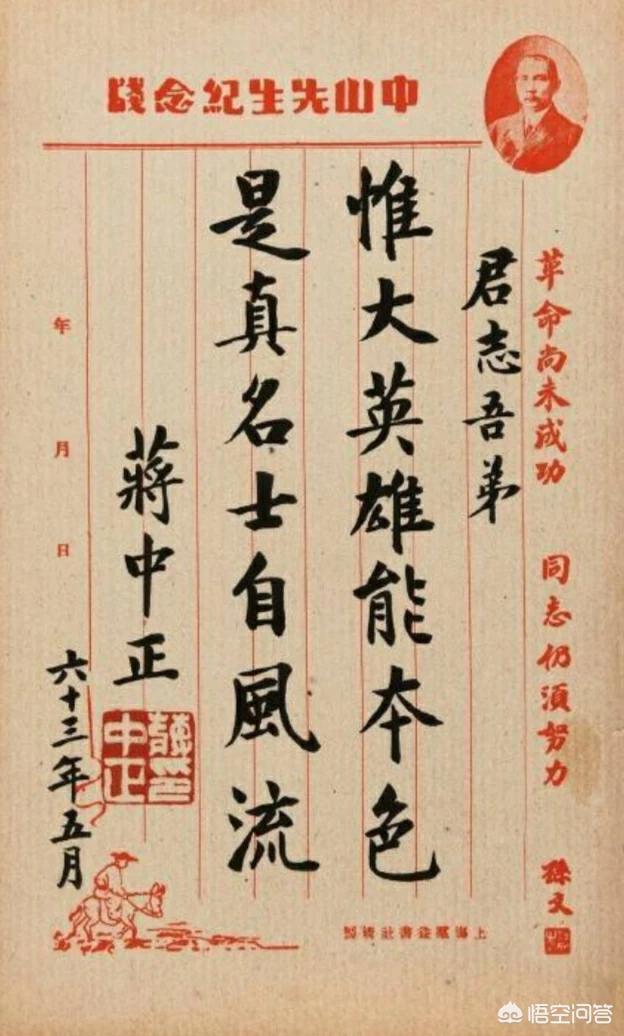 中山先生紀念牋
革命尚未成功 同志仍須努力 孫文
君志吾弟
惟大英雄能本色
是真名士自風流
蔣中正
蔣印中正
年 月 日
六十三年五月
上海羣益書社製
悟空问答